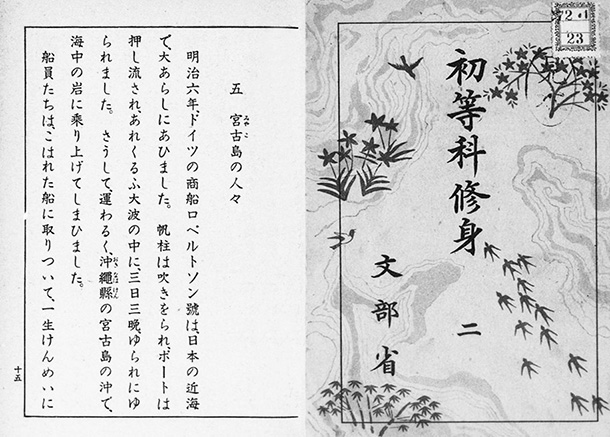 初等科修身 二
文部省
72-1
23
五 宮古島の人々
みやこ
明治六年、ドイツの商船ロベルトソン號は、日本の近海
で、大あらしにあひました。帆柱は吹きをられ、ボートは
押し流され、あれくるふ大波の中に、三日三晩、ゆられにゆ
られました。さうして、運わるく、沖繩縣の宮古島の沖で、
おきなはけん
海中の岩に乗り上げてしまひました。
船員たちは、こはれた船に取りついて、一生けんめいに
十五